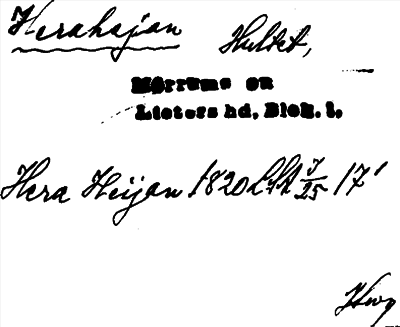 Herahejan Hultet,
Mörrums sn
Listers hd, Blek. l.
Hera Heijan 1820 LSA 7/25 17'